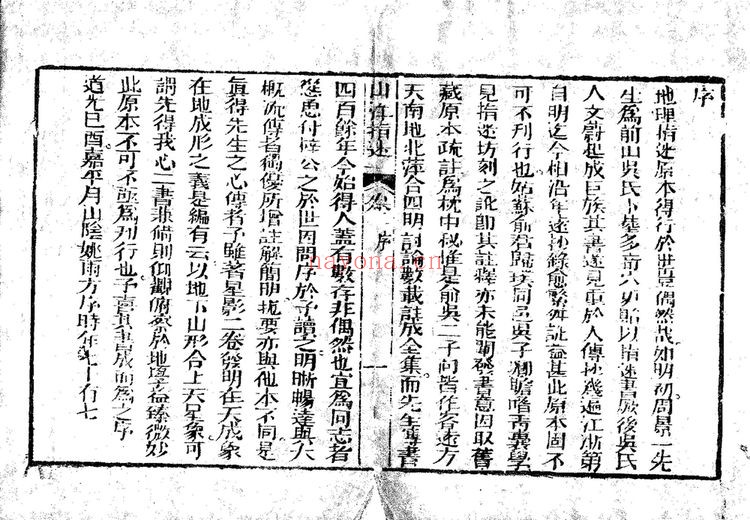 序
地理指迷原本得行於世豈偶然哉如明初周景一先
生爲前山吳氏卜墓多奇穴兼貽以指迷書厥後吳氏
人文蔚起成巨族其書遂見重於人傳抄幾遍江浙第
自明迄今相沿年遠抄錄愈繁舛訛益甚此原本固不
可不刊行也姑蘇前君歸璞同吳子卿瞻嗜靑囊學
見指迷坊刻之訛即其註釋亦未能闡發書意因取舊
藏原本疏註爲枕中秘是前吳二子向皆作客遠方
天南地北萍合四明討論數載註成全集而先生專書
山洋指迷 卷 序 一
四百餘年今始得人蓋有數存非偶然也宜爲同志者
慫恿付梓公之於世因問序於予讀之明晰暢達與大
概流傳者獨優所增註解簡明扼要亦與他本不同是
眞得先生之心傳者予雖著星影二卷發明在天成象
在地成形之義是編有云以地下山形合上天星象可
謂先得我心二書兼備則仰觀俯察於地理益臻微妙
此原本不可不亟爲刊行也予喜其書成而爲之序
道光己酉嘉平月山陰姚雨方序時年 十有七
nayona.cn